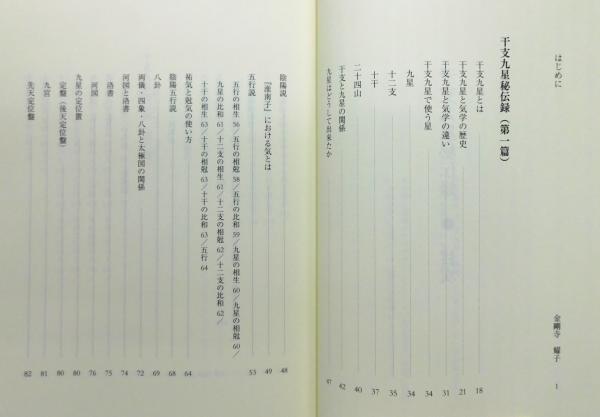 はじめに 金剛寺 耀子 1
干支九星秘伝録（第一篇）
干支九星とは 18
干支九星と気学の歴史 21
干支九星と気学の違い 31
干支九星で使う星 34
九星 34
十二支 35
十干 37
二十四山 40
干支と九星の関係 42
九星はどうして出来たか 47
陰陽説 48
『淮南子』における気とは 49
五行説 53
五行の相生 56／五行の相剋 58／五行の比和 59／九星の相生 60／九星の相剋 60／
九星の比和 61／十二支の相生 61／十二支の相剋 62／十二支の比和 62／
十干の相生 63／十干の相剋 63／十干の比和 63／五行 64
祐気と剋気の使い方 64
陰陽五行説 68
八卦 69
両儀・四象・八卦と太極図の関係 72
河図と洛書 74
洛書 75
河図 76
九星の定位置 80
定盤（後天定位盤） 80
九宮 81
先天定位盤 82